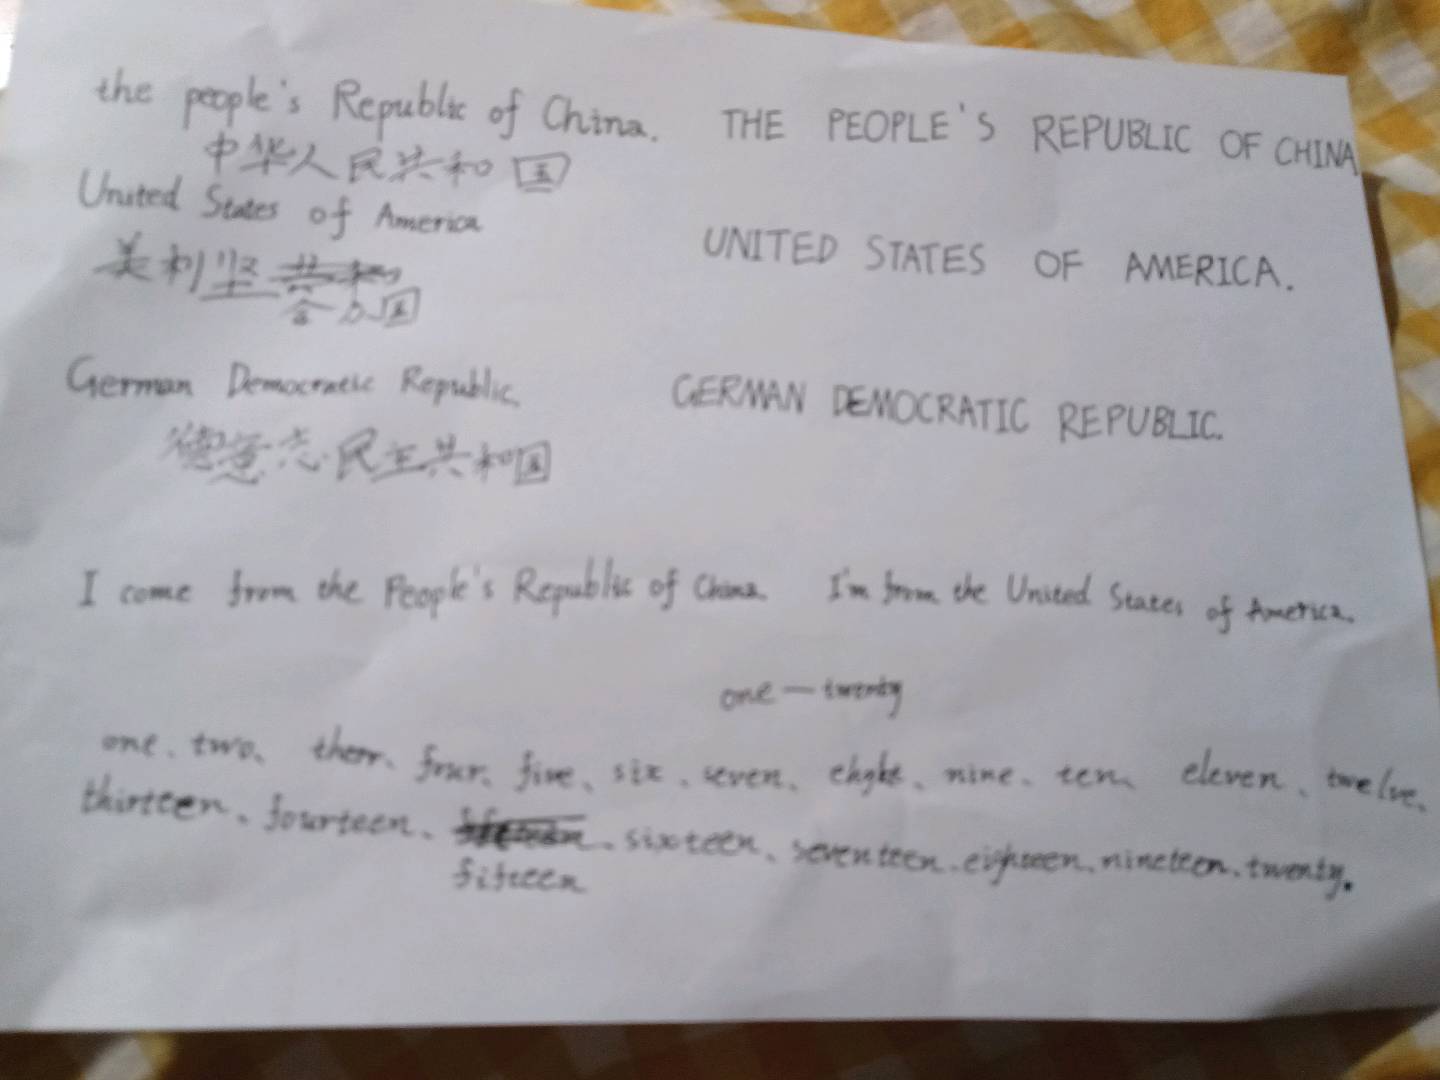 the people's Republic of China. THE PEOPLE'S REPUBLIC OF CHINA
中华人民共和国
United States of America UNITED STATES OF AMERICA.
美利坚
合众国
German Democratic Republic. GERMAN DEMOCRATIC REPUBLIC.
德意志民主共和国
I come from the People's Republic of China. I'm from the United States of America.
one — twenty
one、two、 four、five、six、seven、 nine、ten、eleven、twelve、
thirteen、fourteen、 sixteen、seventeen、eighteen、nineteen、twenty.
fifteen